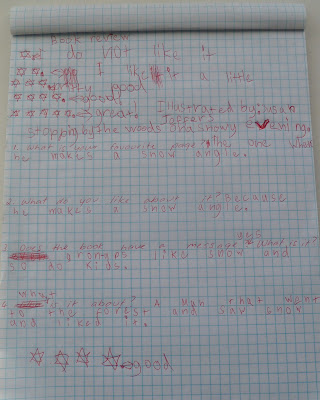 Book review
☆. do not like it
☆☆. I like it a little
☆☆☆. good
☆☆☆☆. good
☆☆☆☆☆. great! Illustrated by: Susan
Jeffers
stopping by the woods on a snowy evening.
1. what is your favorite page? the one when
he makes a snow angle.
2. what do you like about it? Because
he makes a snow angle.
3. Does the book have a message? yes what is it?
gronups like snow and
so do kids.
4. what is it about? A man that went
to the forest and saw snow
and liked it.
☆☆☆☆ good